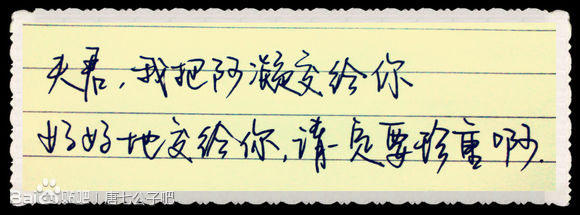 夫君,我把阿凝交给你
好好地交给你,请一定要珍重啊.
Bai 贴吧 | 唐七公子吧